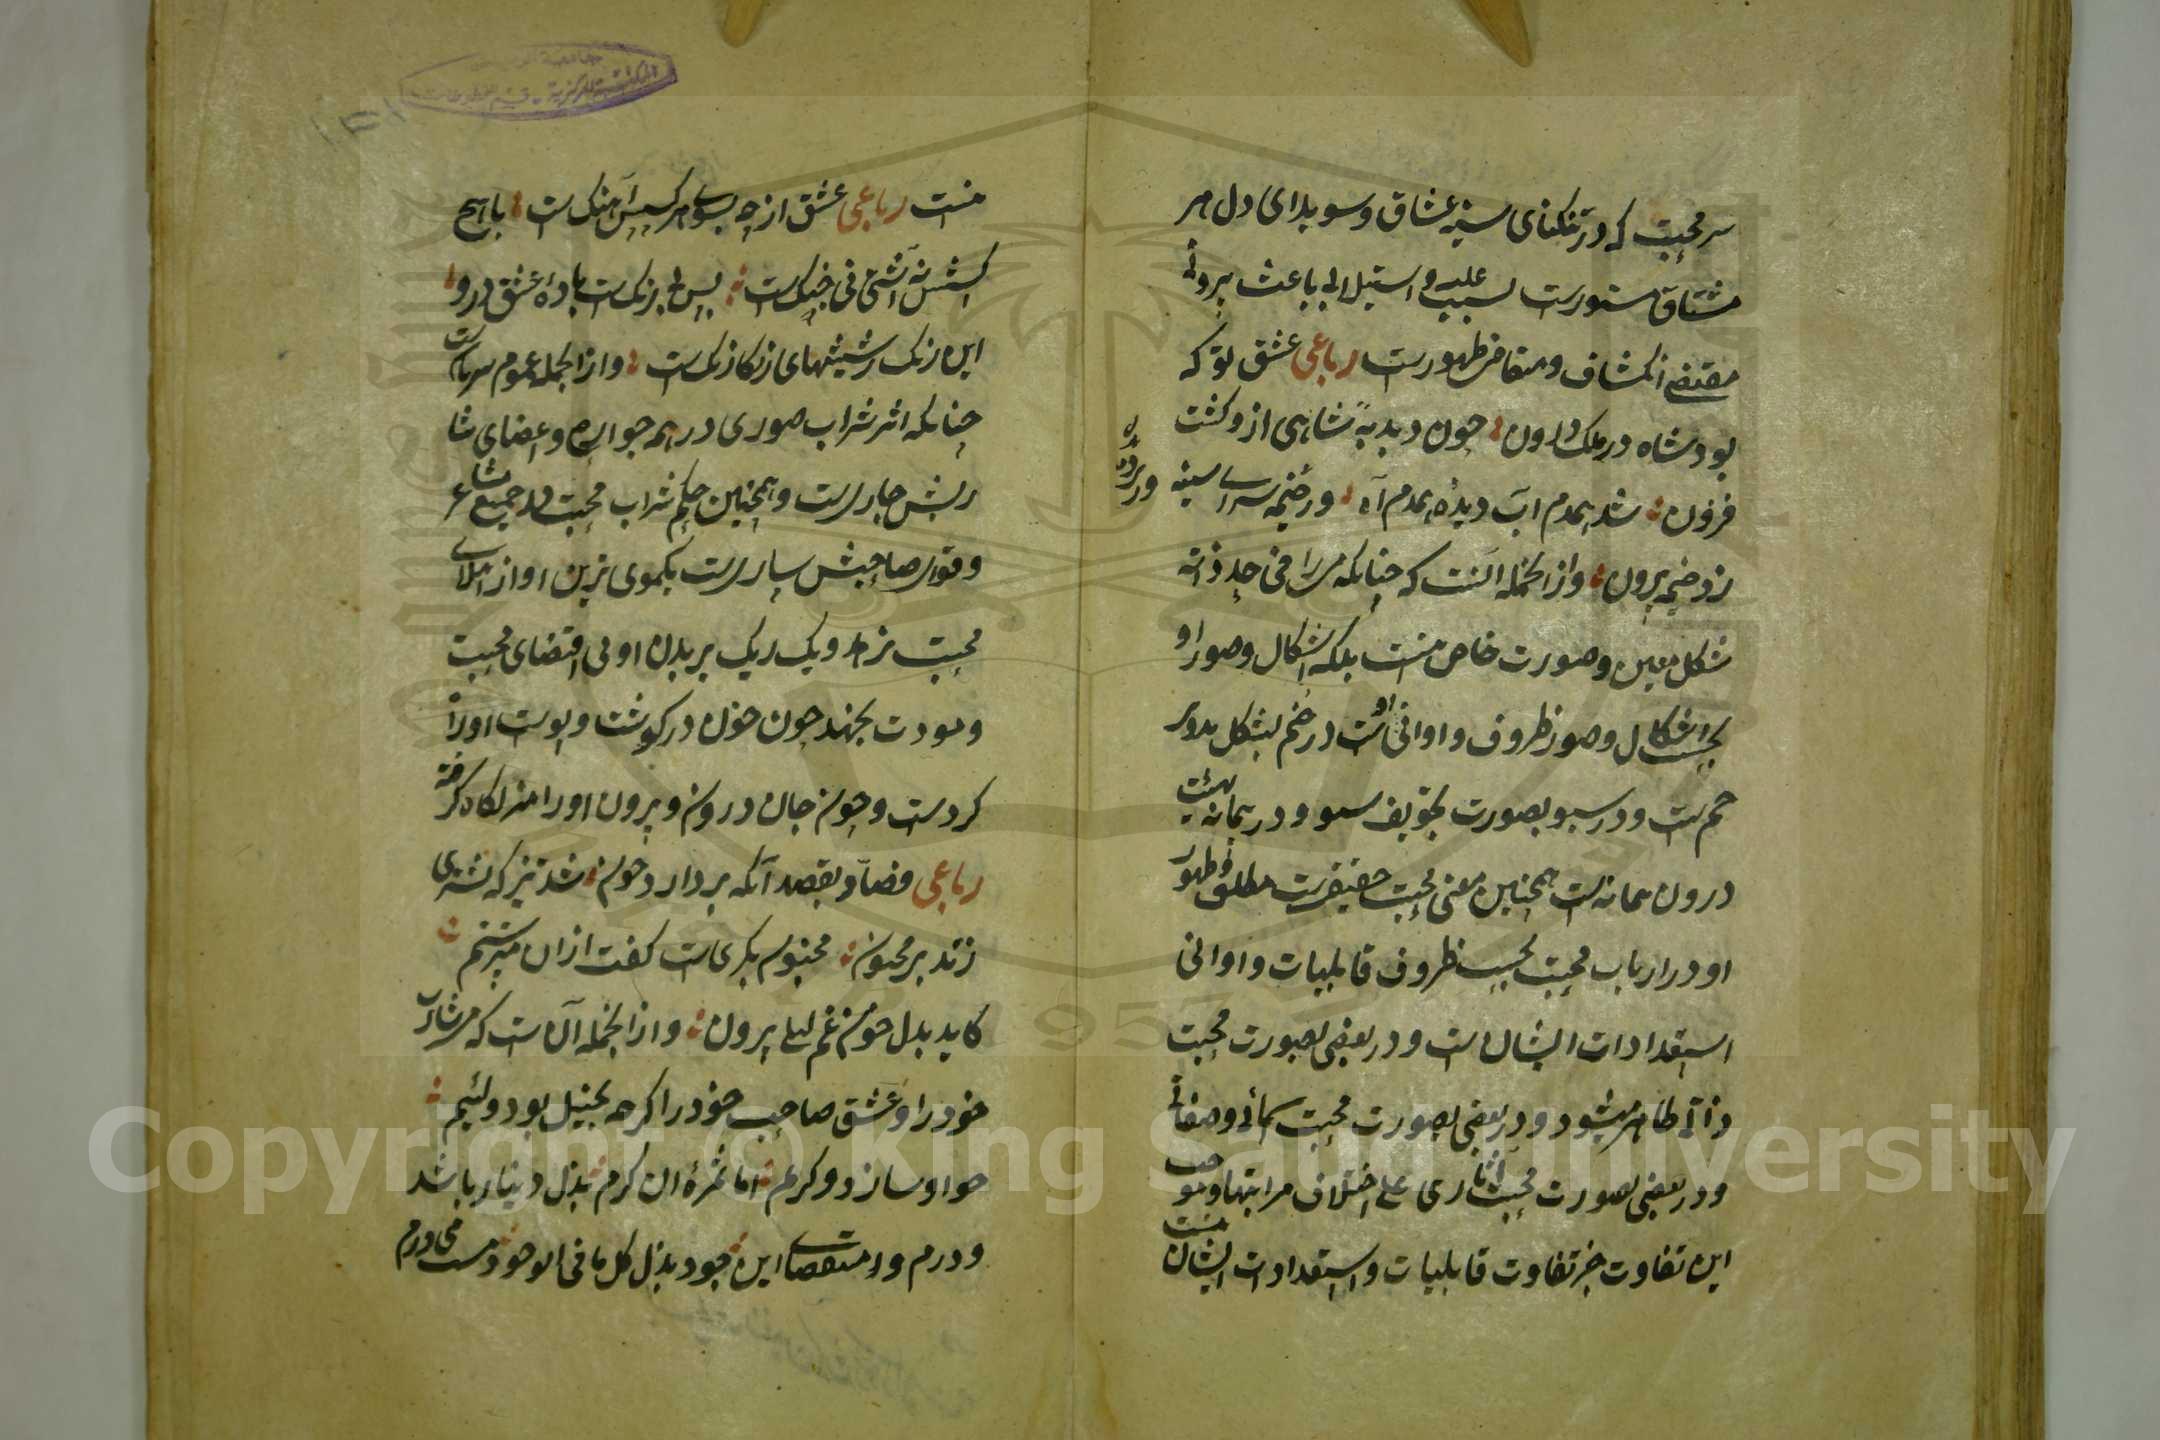 سر محبت که در تنکنای سینه عشاق و سویدای دل هر
مشتاق مستورست بسبب غلبه و استیلا باعث بیرونی
مقتضی انکشاف و متقاضی ظهورست رباعی عشق تو که
بود شاه در ملک درون چون دبدبهٔ شاهی او کشت
فزون شد همدم آب دیده همدم آه ور خیمه سرای سینه
ور پرده
زد خیمه برون و از آنجمله آنست که چنانکه می را فی حد ذاته
شکل معین و صورت خاص نیست بلکه اشکال و صور او
بحسب اشکال و صور ظروف و اوانی اوست در خم بشکل تدویر
خم است و در سبو بصورت تجویف سبو و در پیمانه بهیئت
درون پیمانه است همچنین معنی محبت حقیقیست مطلق و ظهور
او در ارباب محبت بحسب ظروف قابلیات و اوانی
استعدادات ایشان است و در بعضی بصورت محبت
ذاتی ظاهر میشود و در بعضی بصورت محبت اسمائی و صفاتی
و در بعضی بصورت محبت آثاری علی اختلاف مراتبها و موجب
این تفاوت جز تفاوت قابلیات و استعدادات ایشان
نیست
نیست رباعی عشق ار چه بسوی هر کسش آهنک است با هیچ
کسش نه آشتی نی جنک است بس بی رنک است باده عشق درو
این رنک ز شیشهای رنکارنک است و از آنجمله عموم سریانست
چنانکه اثر شراب صوری در همه جوارح و اعضای شا
ربش جاریست و همچنین حکم شراب محبت در جمیع مشاعر
و قوای صاحبش ساریست یکموی بر تن او از ابتلای
محبت نرهد و یک رک بر بدن او بی اقتضای محبت
و مودت نجهد چون خون در کوشت و پوست او راه
کردست و چون جان درون و برون او را منزلکاه کرفته
رباعی فصاد بقصد آنکه بردارد خون شد تیز که نشتری
زند بر مجنون مجنون بکریست کفت از آن میترسم
کاید بدل خون غم لیلی برون و از آنجمله آن است که می شارب
خود را و عشق صاحب خود را اکرچه بخیل بود و لئیم
جواد سازد و کریم اما ثمرهٔ آن کرم بذل دینار باشد
و درم و مقتضای این جود بذل کل ما فی الوجود مست می درم
Copyright © King Saud University
1957